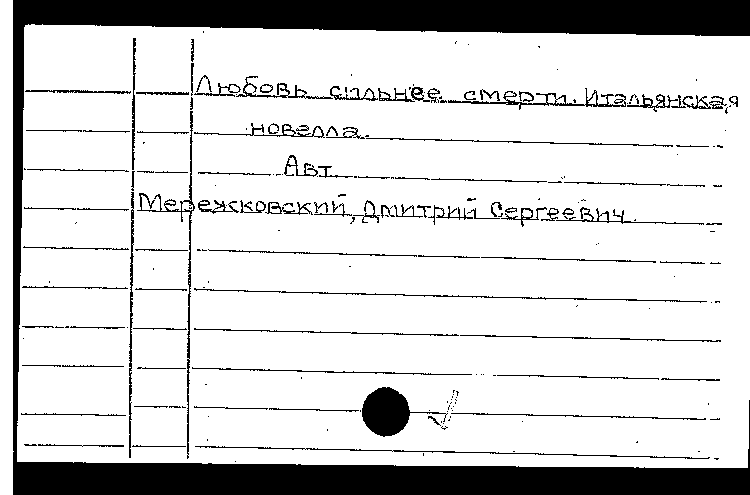 Любовь сильнее смерти. Итальянская
новелла.
Авт.
Мережковский, Дмитрий Сергеевич.